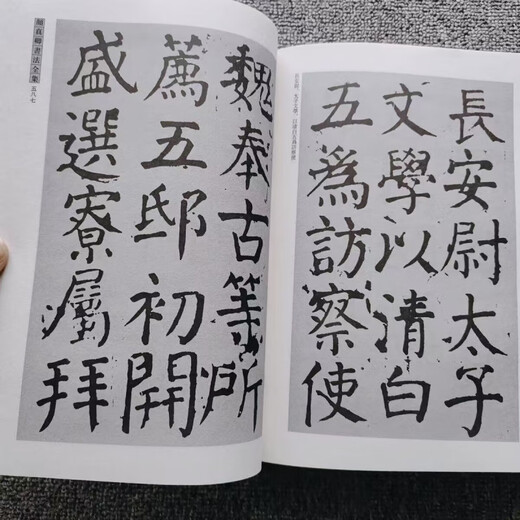 長安尉太子
文學以清白
五為訪察使
魏奉古等所
薦五邸初開
盛選寮屬拜
顏真卿書法全集
五八七